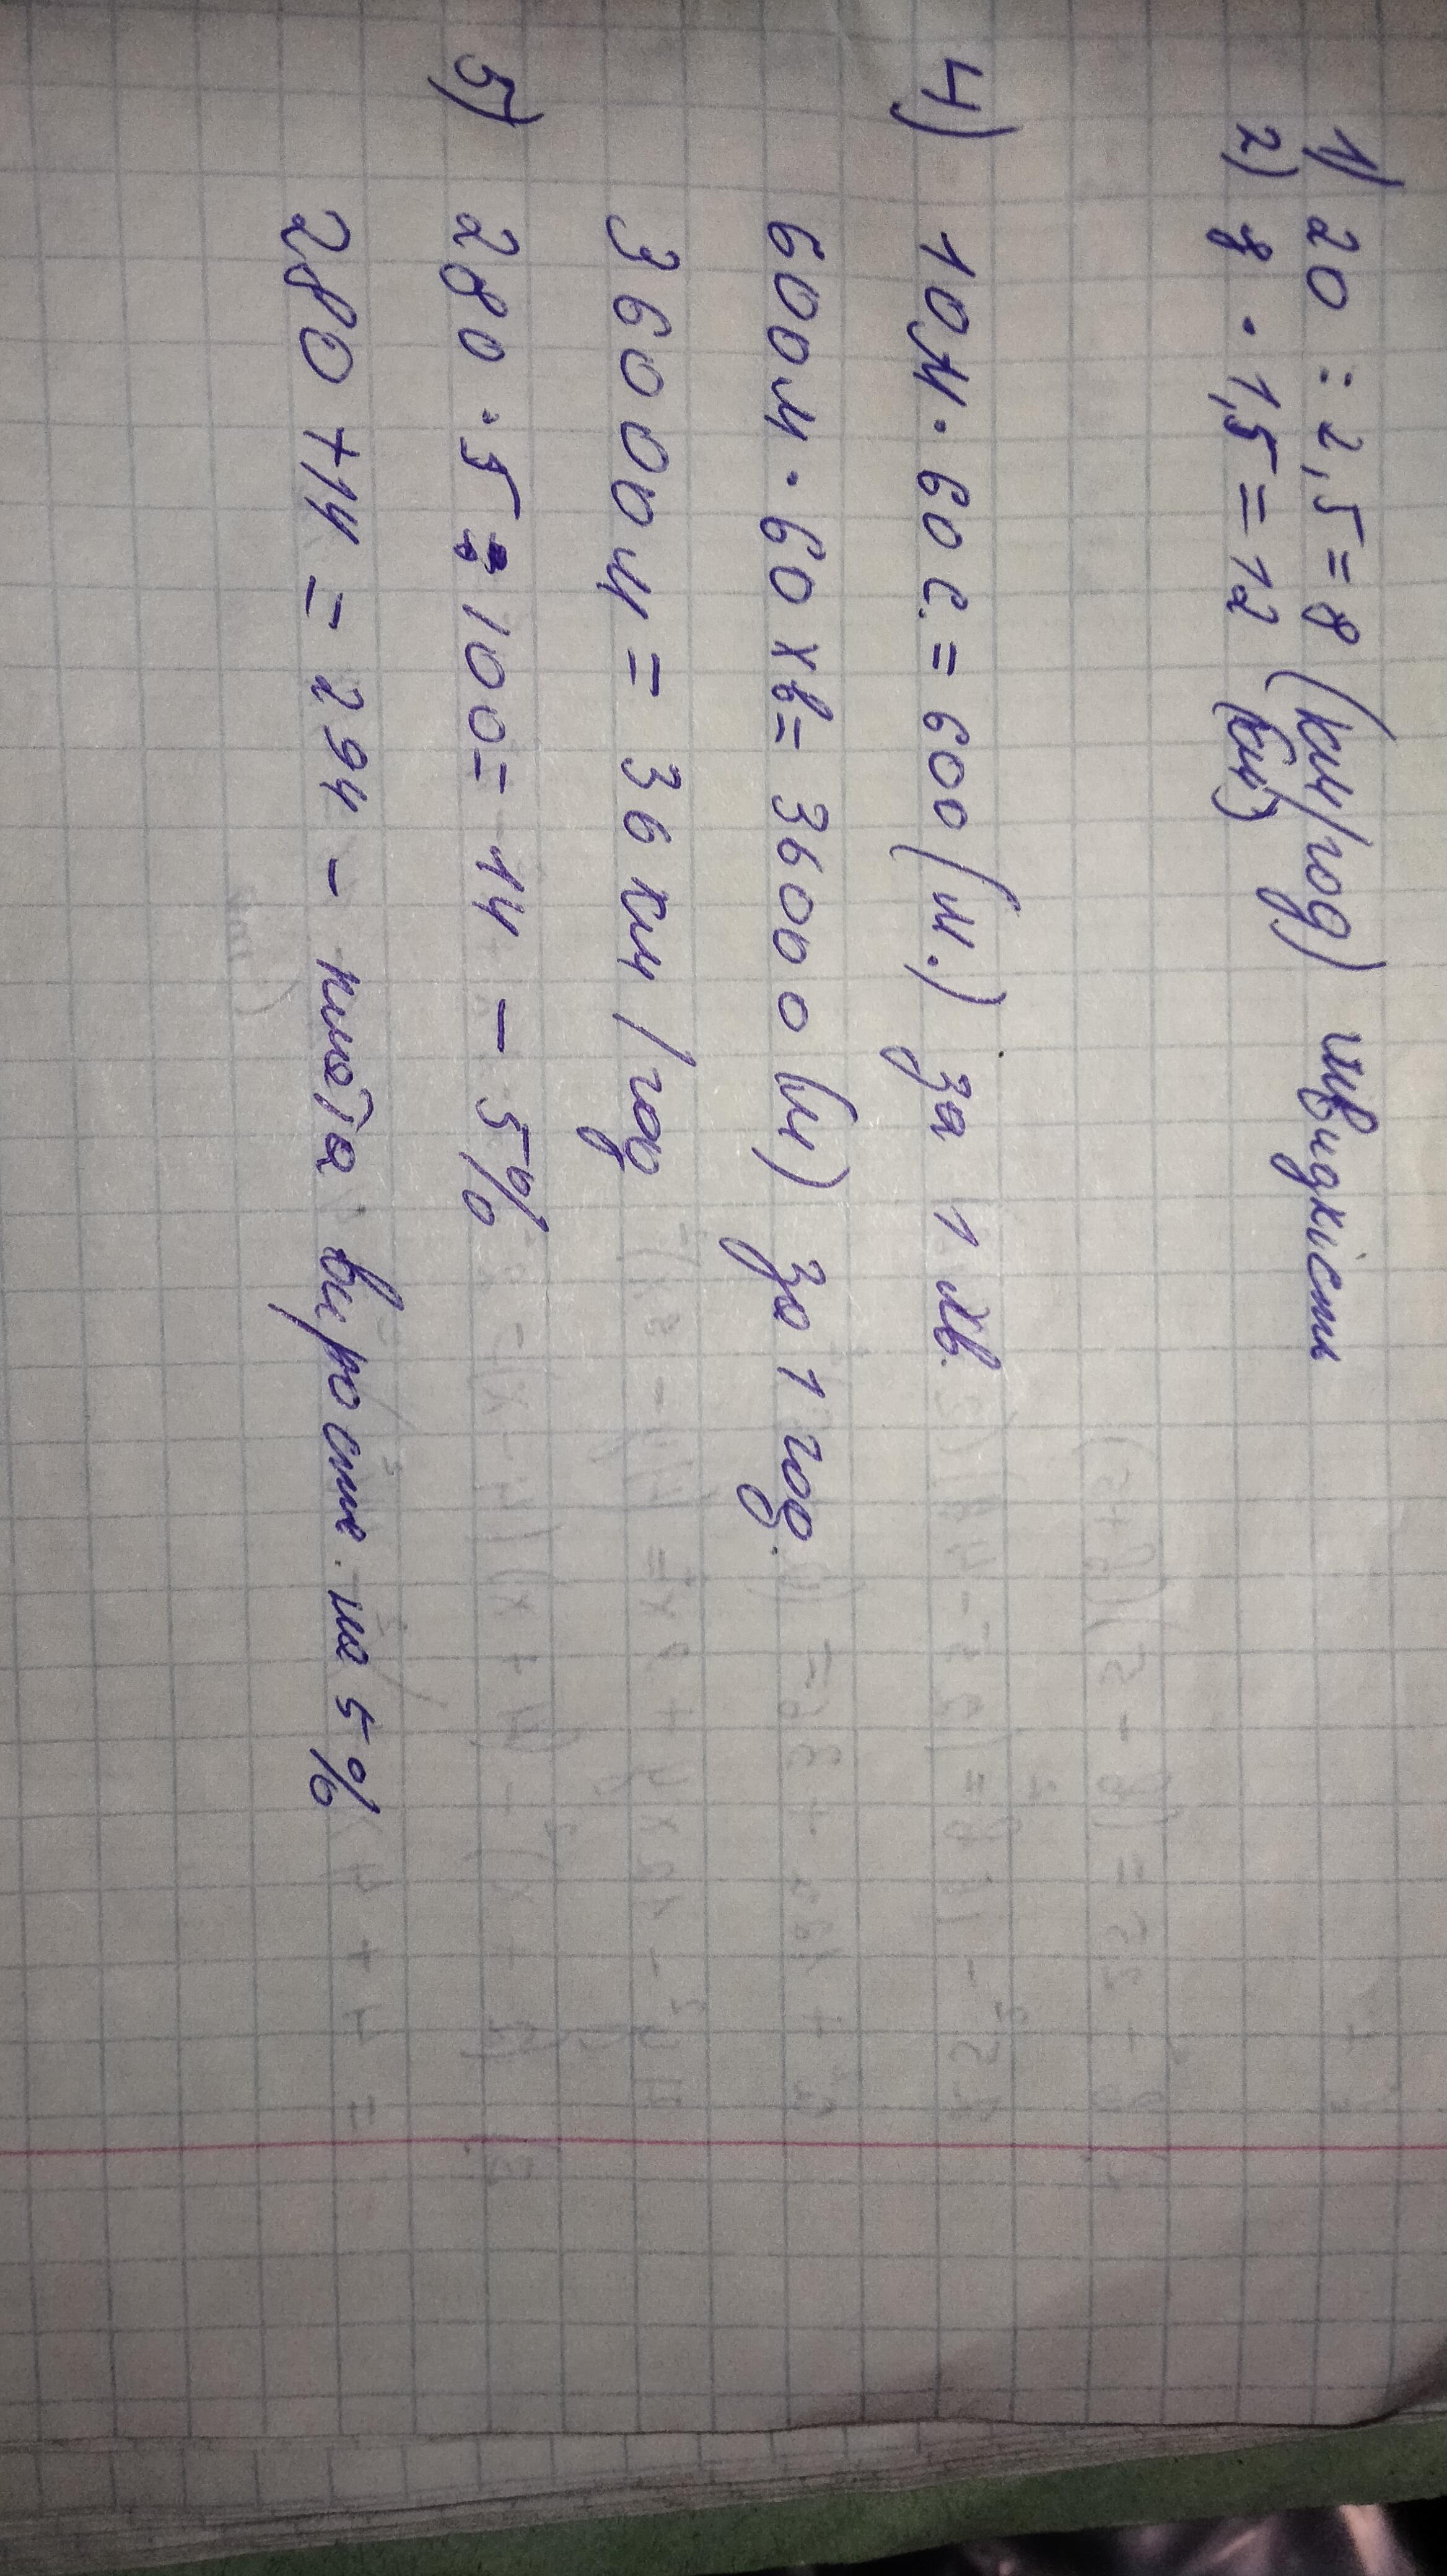 1) 20 : 2,5 = 8 (км/год) швидкість
2) 8 · 1,5 = 12 (км)
4) 10м · 60 с. = 600 (м.) за 1 хв.
600м · 60 хв = 36000 (м) за 1 год.
36000 м = 36 км / год
5) 280 · 5 : 100 = 14 - 5%
280 + 14 = 294 - плата виросте на 5%